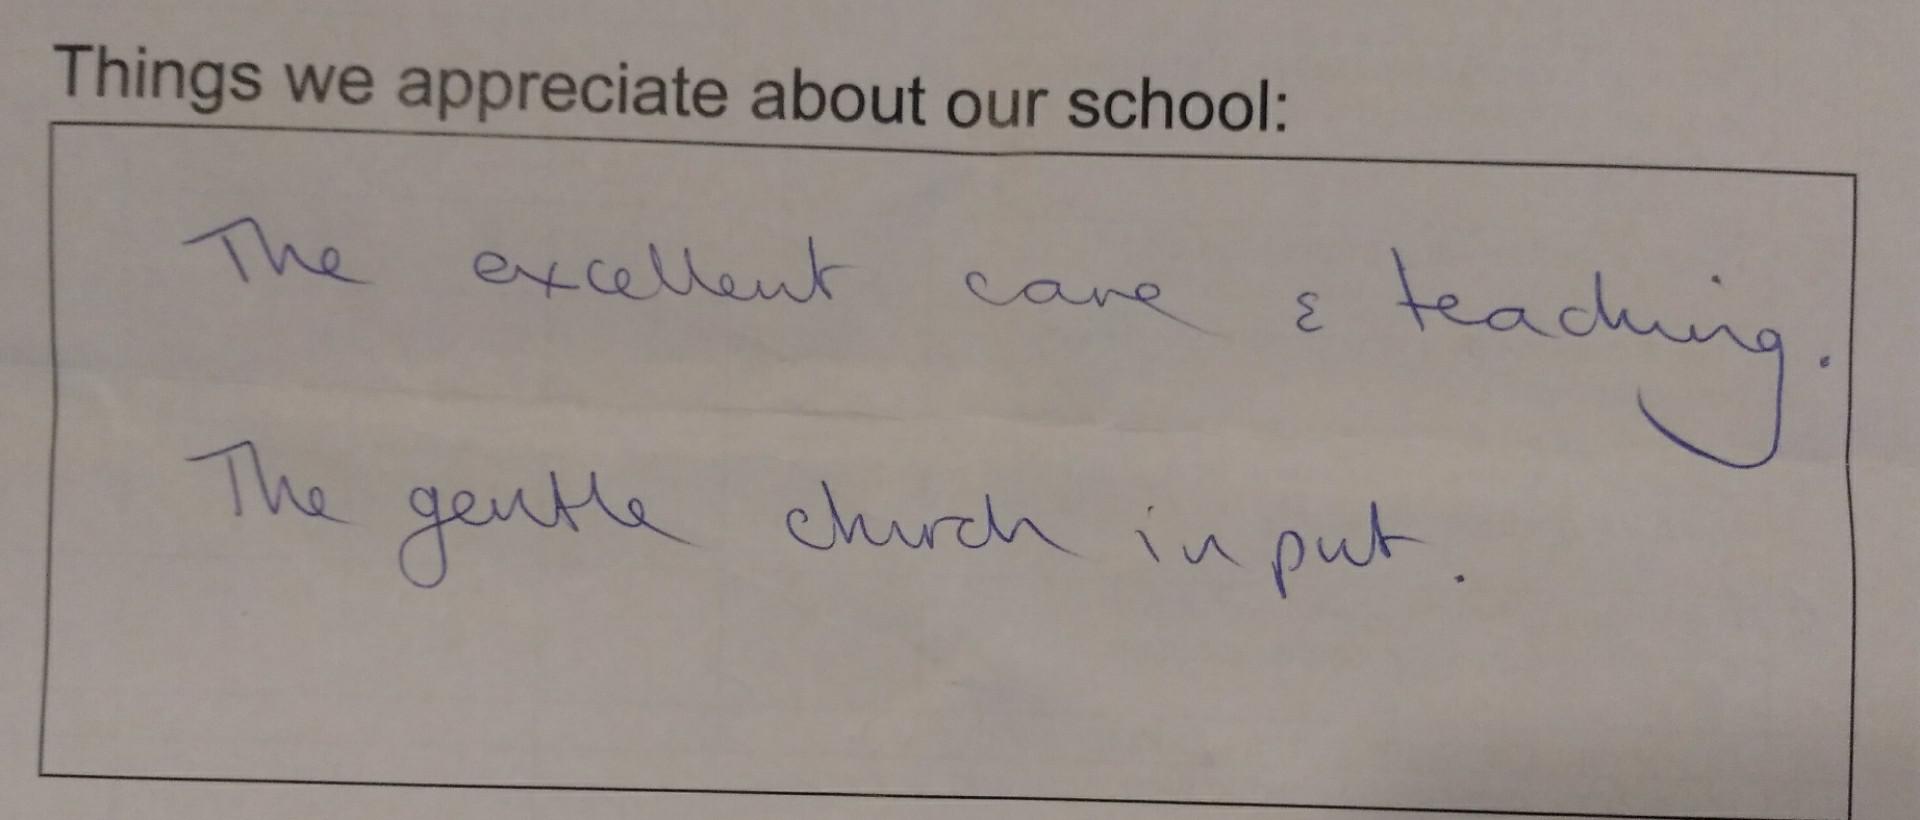 Things we appreciate about our school:
The excellent care & teaching.
The gentle church input.